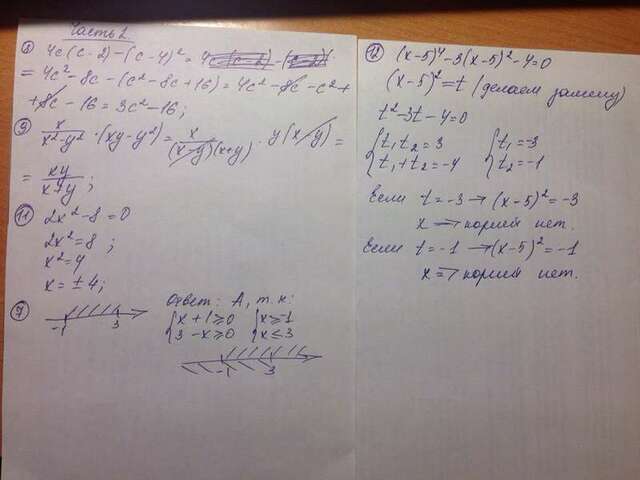 Часть 2
8) 4c(c-2)-(c-4)² = 4c
= 4c²-8c-(c²-8c+16) = 4c²-8c-c²+
+8c-16=3c²-16;
9) x/(x²-y²) · (xy-y²) = x/((x-y)(x+y)) · y(x-y) =
= xy/(x+y);
11) 2x²-8=0
2x²=8;
x²=4
x=±4;
7) -1 3
Ответ: А, т.к:
{x+1≥0 {x≥-1
{3-x≥0 {x≤3
-1 3
12) (x-5)⁴-3(x-5)²-4=0
(x-5)²=t (делаем замену)
t²-3t-4=0
{t₁t₂=3 {t₁=-3
{t₁+t₂=-4 {t₂=-1
Если t=-3 → (x-5)²=-3
x ⇒ корней нет.
Если t=-1 → (x-5)²=-1
x ⇒ корней нет.